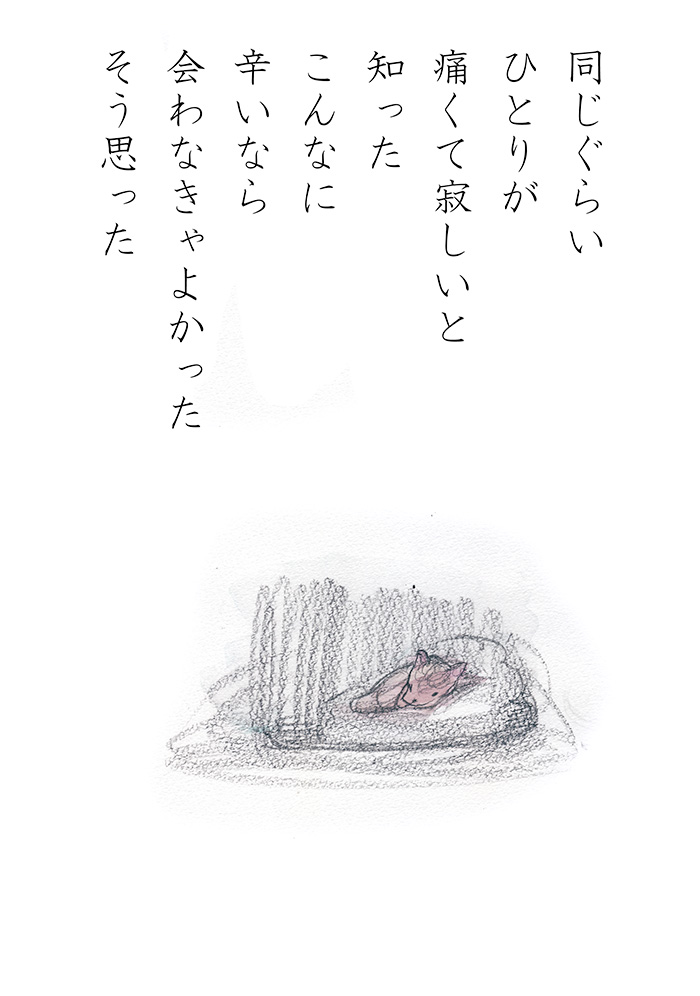 同じぐらい
ひとりが
痛くて寂しいと
知った
こんなに
辛いなら
会わなきゃよかった
そう思った